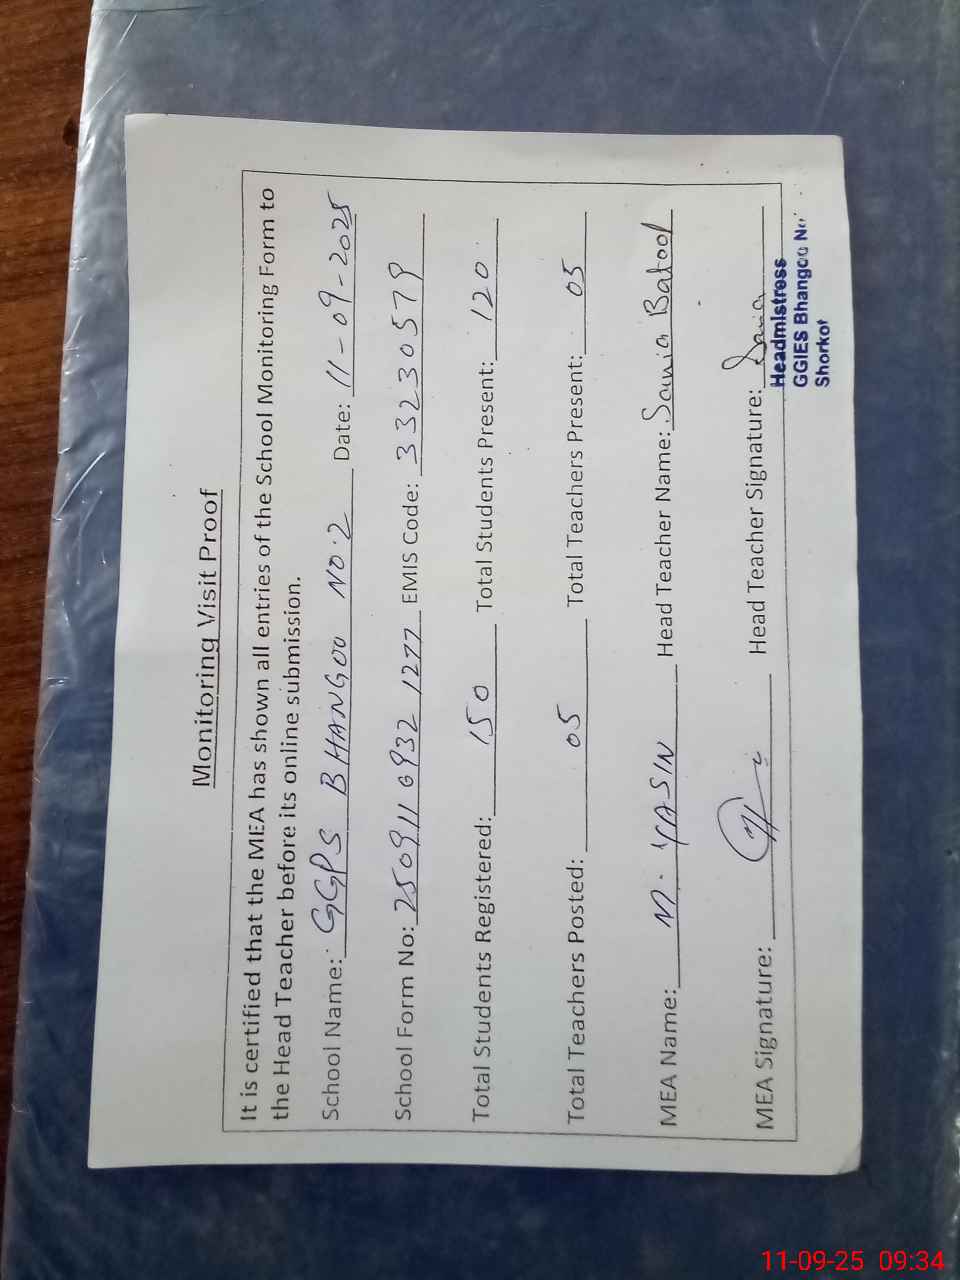 Monitoring Visit Proof
It is certified that the MEA has shown all entries of the School Monitoring Form to
the Head Teacher before its online submission.
School Name: GGPS BHANGOO NO.2 Date: 11-09-2025
School Form No: 250911 0932 1277 EMIS Code: 33230579
Total Students Registered: 150 Total Students Present: 120
Total Teachers Posted: 05 Total Teachers Present: 05
MEA Name: M. YASIN Head Teacher Name: Batool
MEA Signature: Head Teacher Signature:
Headmistress
GGIES Bhangoo No.
Shorkot
11-09-25 09:34